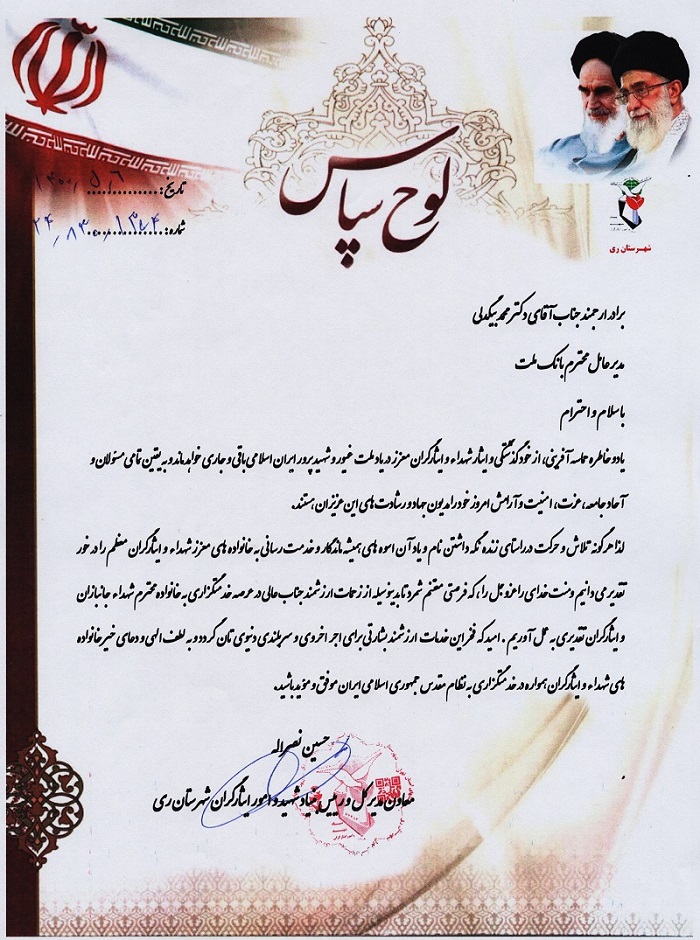 لوح سپاس
تاریخ: ۱۴۰۰/۵/۶
شماره:
شهرستان ری
برادر ارجمند جناب آقای دکتر محمد بیگدلی
مدیر عامل محترم بانک ملت
با سلام و احترام
یاد و خاطره حماسه آفرینی، از خودگذشتگی و ایثار شهداء و ایثارگران معزز در یاد ملت غیور و شهید پرور ایران اسلامی باقی و جاری خواهد ماند و به یقین تمامی مسئولان و
آحاد جامعه، عزت، امنیت و آرامش امروز خود را مدیون جهاد و رشادت های این عزیزان هستند.
لذا هر گونه تلاش و حرکت در راستای زنده نگه داشتن نام و یاد آن اسوه های همیشه ماندگار و خدمت رسانی به خانواده های معزز شهداء و ایثارگران معظم را در خور
تقدیر می دانیم و منت خدای را عزو جل را، که فرصتی مغتنم شمرد تا بدینوسیله از زحمات ارزشمند جناب عالی در عرصه خدمتگزاری به خانواده محترم شهداء جانبازان
و ایثارگران تقدیری به عمل آوریم . امید که فخر این خدمات ارزشمند بشارتی برای اجر اخروی و سربلندی دنیوی تان گردد و به لطف الهی و دعای خیر خانواده
های شهداء و ایثارگران همواره در خدمتگزاری به نظام مقدس جمهوری اسلامی ایران موفق و موید باشید.
حسین نصراله
معاون مدیر کل و رییس بنیاد شهید و امور ایثارگران شهرستان ری